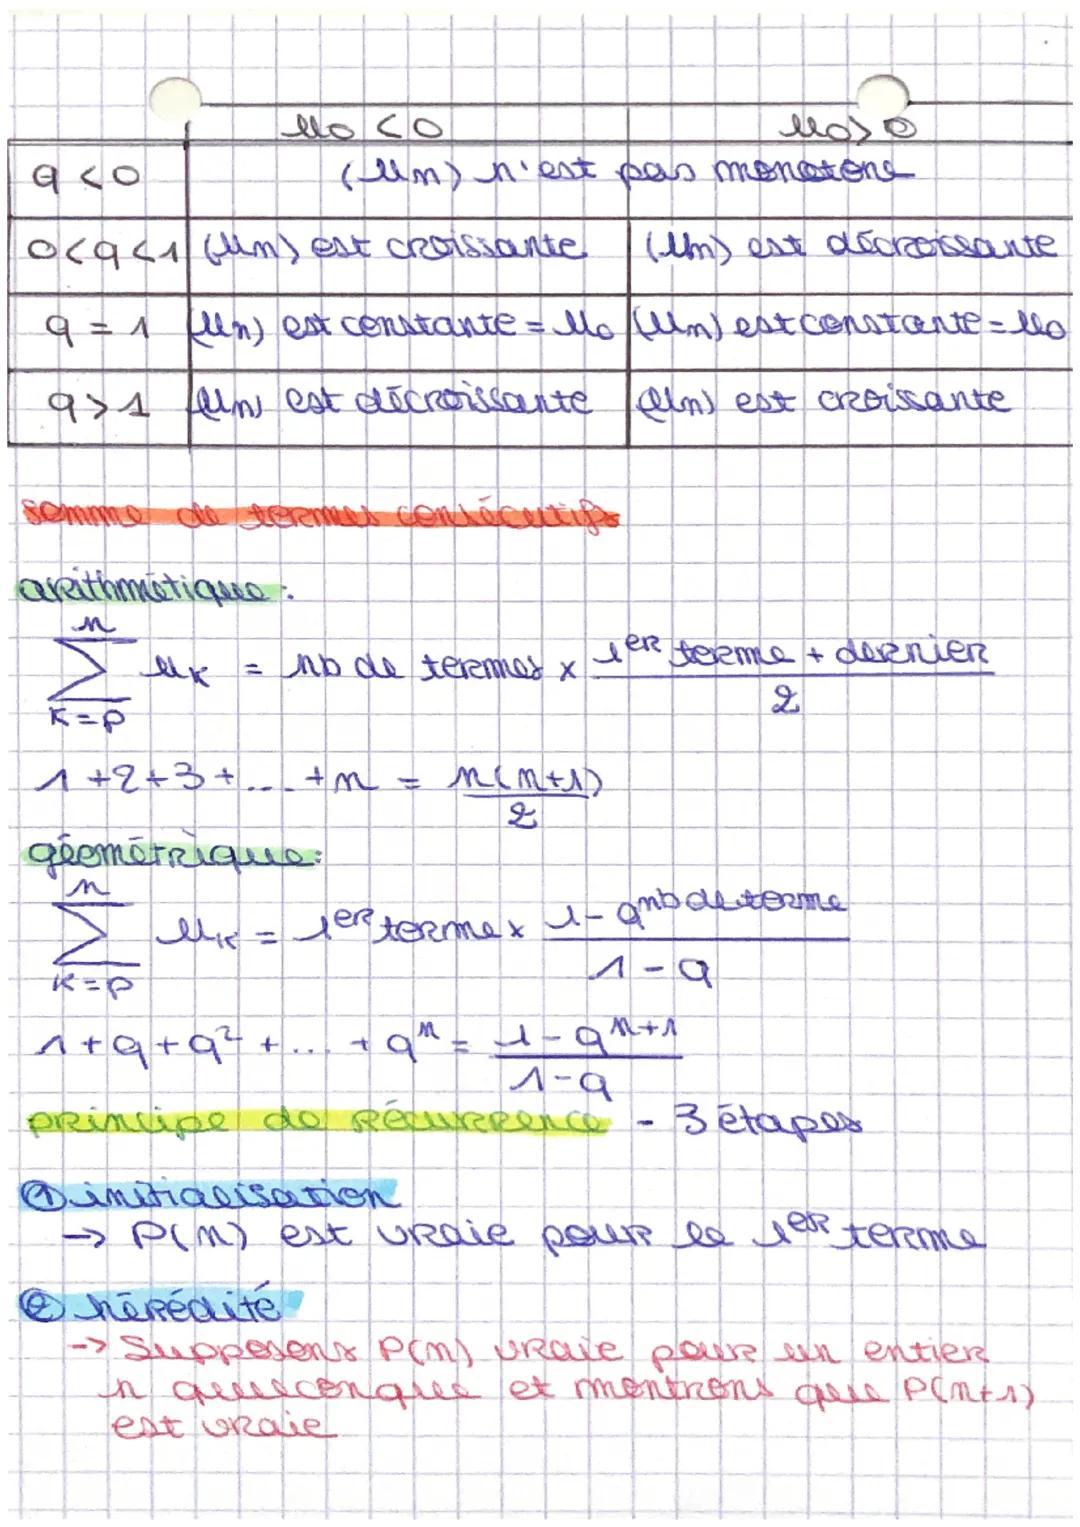 u₀ < 0 u₀ > 0
q < 0 (un) n'est pas monotone
0 < q < 1 (un) est croissante (un) est décroissante
q = 1 (un) est constante = u₀ (un) est constante = u₀
q > 1 (un) est décroissante (un) est croissante
somme de termes consécutifs
arithmétique :
n
∑ uₖ = nb de termes × (1er terme + dernier) / 2
k = p
1 + 2 + 3 + ... + n = n(n+1) / 2
géométrique :
n
∑ uₖ = 1er terme × (1 - q^nb de terme) / (1 - q)
k = p
1 + q + q² + ... + qⁿ = (1 - qⁿ⁺¹) / (1 - q)
principe de récurrence - 3 étapes
① initialisation
→ P(n) est vraie pour le 1er terme
② hérédité
→ Supposons P(n) vraie pour un entier
n quelconque et montrons que P(n+1)
est vraie